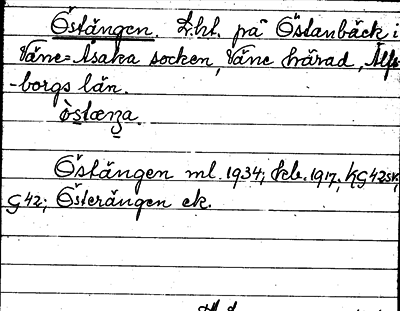 Östängen. Lht. på Östanbäck i
Väne-Åsaka socken, Väne härad, Älfs-
-borgs län.
òstæŋa.
Östängen ml. 1934; kb. 1917, KG42SK,
G42; Österängen ek.